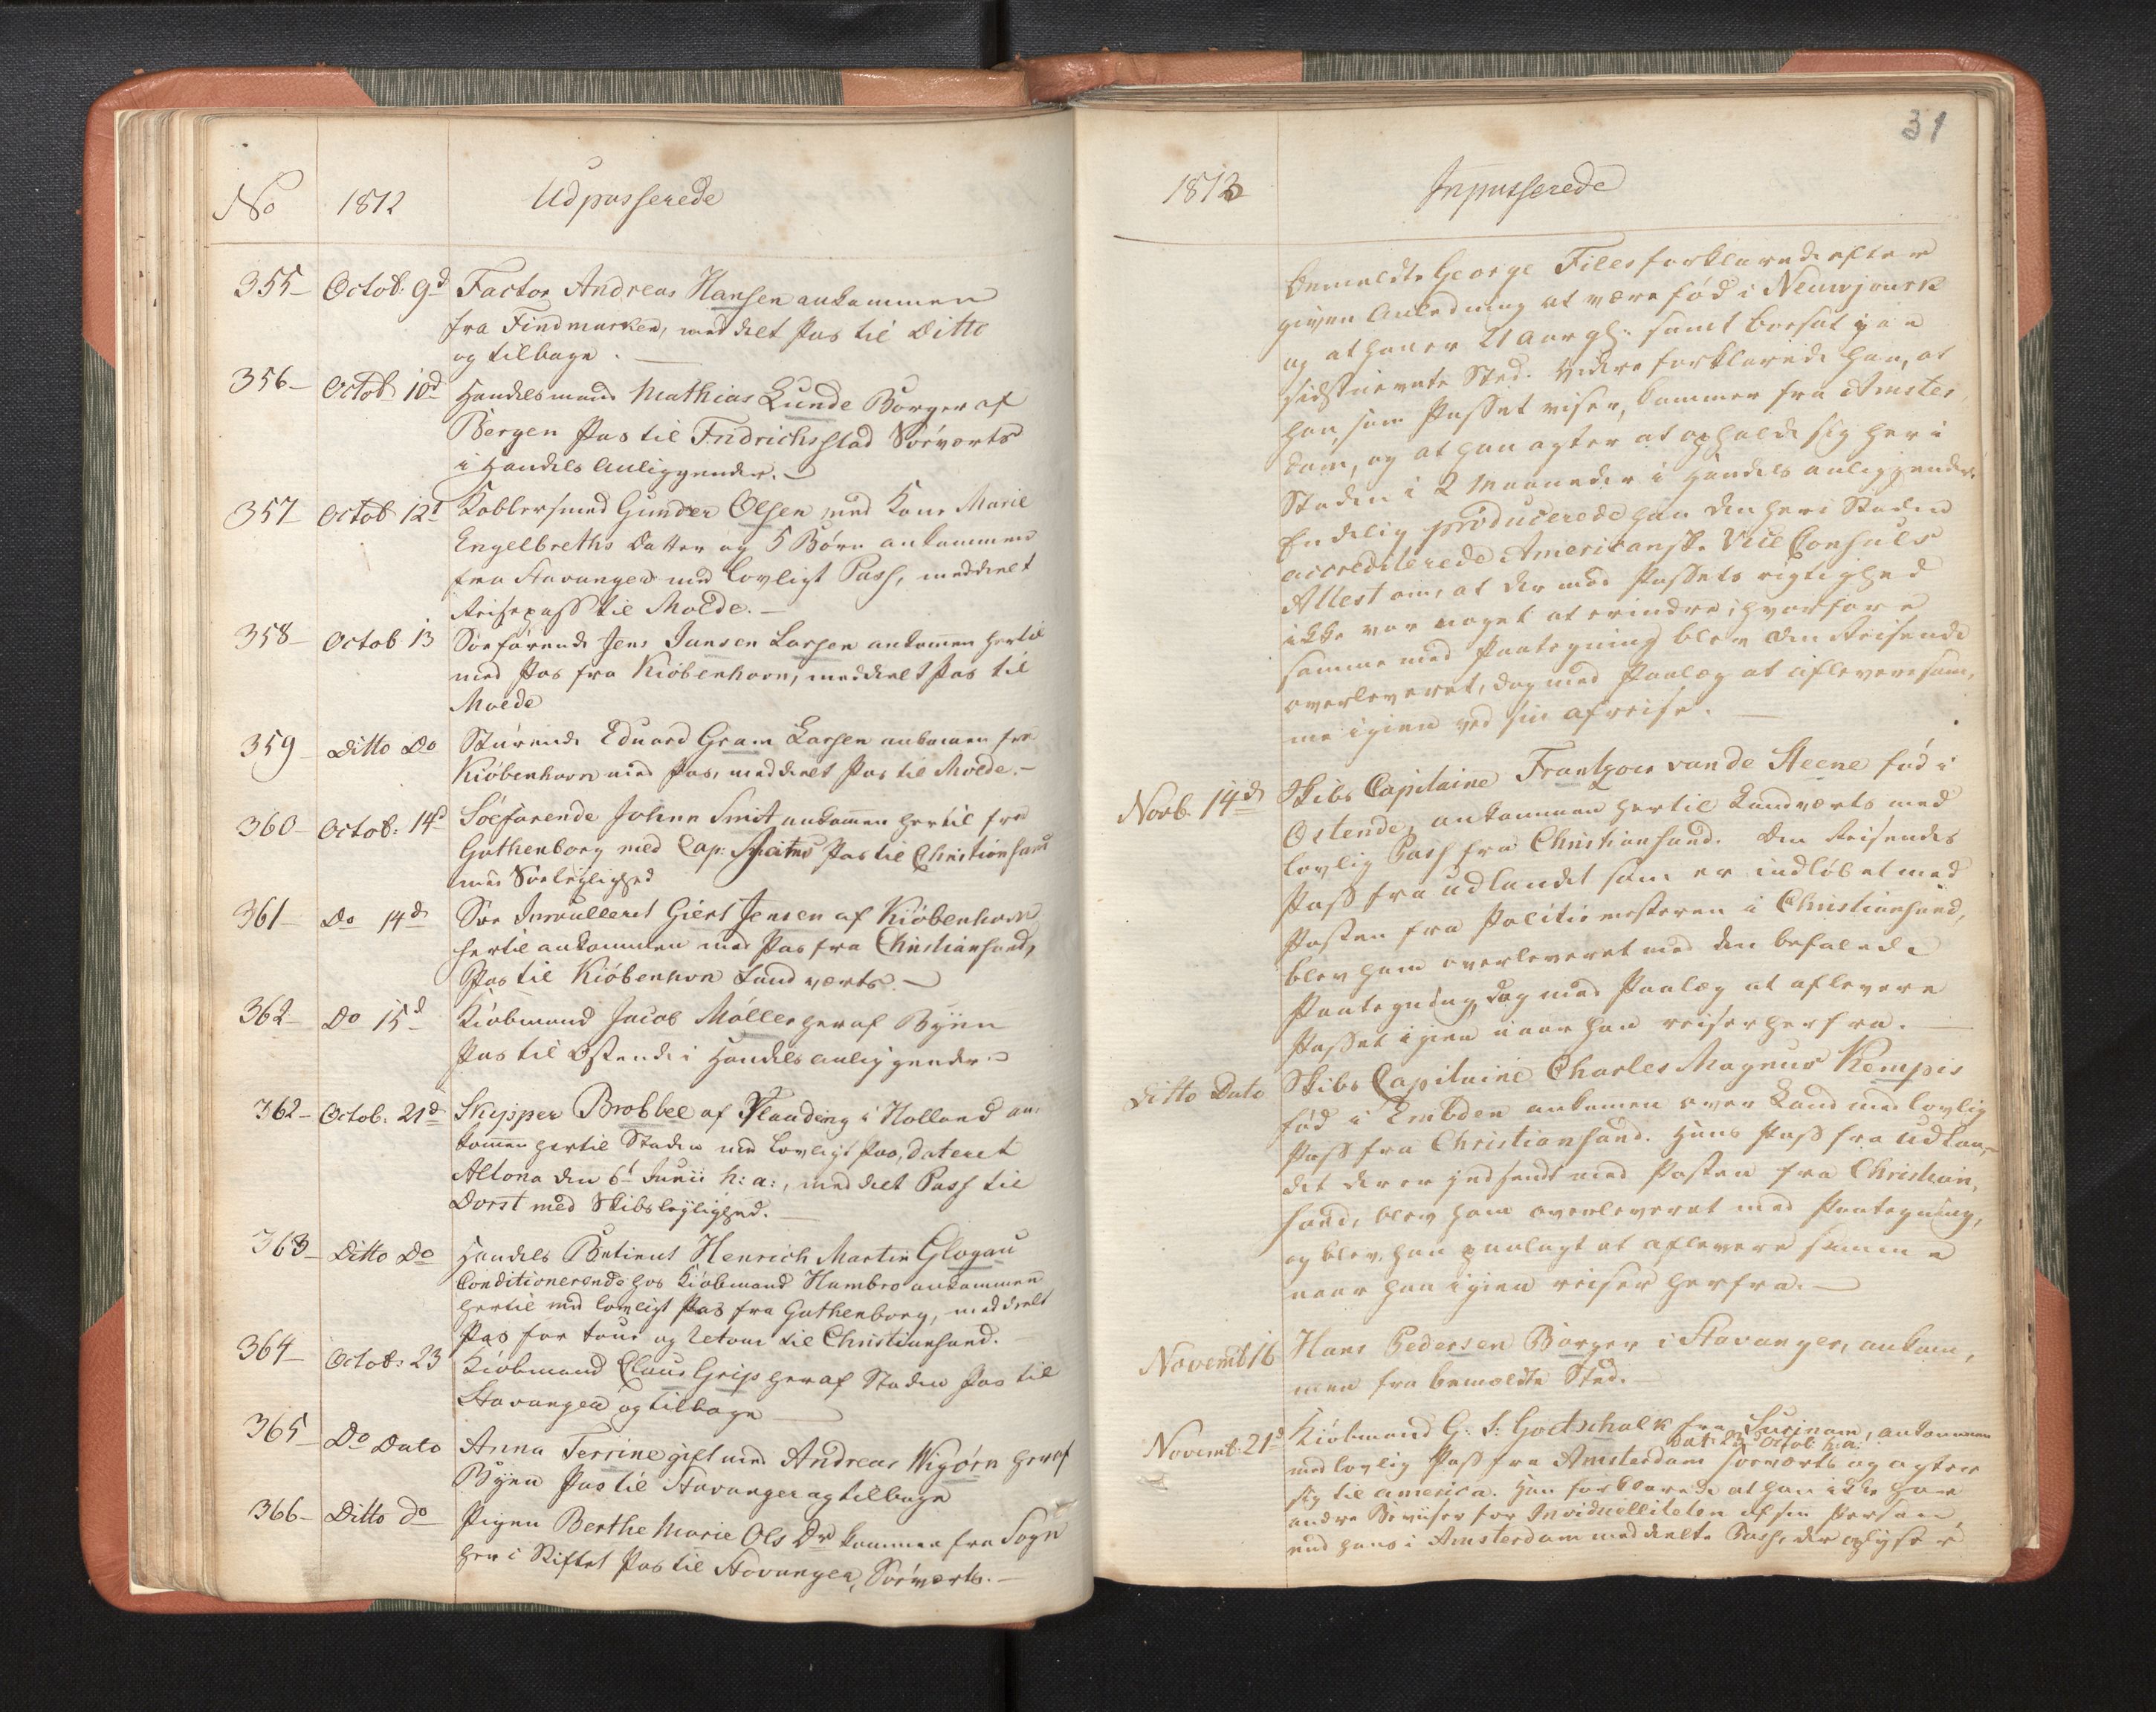 No 1812 Udpasserede
355 Octob: 9d Factor Andreas Hansen ankommen
fra Findmarken, meddelt Pas til Ditto
og tilbage.
356 Octob 10d Handelsmand Mathias Lunde Borger af
Bergen Pas til Fridrichsstad Söeværts
i Handels Anliggender.
357 Octob 12t Kobbersmed Gunder Olsen med Kone Marie
Engelbreths Datter og 5 Börn ankommen
fra Stavanger med lovligt Pass, meddeelt
Reisepass til Molde.
358 Octob 13 Söefarende Jens Jansen Larsen ankommen hertil
med Pas fra Kiöbenhavn, meddeelt Pas til
Molde
359 Ditto Do Eduard Gram Larsen ankommen fra
Kiöbenhavn med Pas, meddeelt Pas til Molde.
360 Octob: 14d Söefarende Johnn Smit ankommen hertil fra
Gothenborg med Cap: Pas til Christiansund
med Söeleylighed
361 Do 14d Söe Inroulleret Giert Jensen af Kiöbenhavn
hertil ankommen med Pas fra Christiansand,
Pas til Kiöbenhvn Landværts.
362 Do 15d Kiöbmand Jacob Möller her af Byen
Pas til Ostende i Handels anliggender
362 Octob. 21d Skipper Brobbee af i Holland an-
kommen hertil Staden med lovligt Pas, dateret
Altona den 6t Junii h: a:, meddelt Pass til
Dorst med Skibsleylighed.
363 Ditto Do Handels Betient Henrich Martin Glogau
Conditionerende hos Kiöbmand Hambro ankommen
hertil med lovligt Pas fra Gothenborg, meddeelt
Pas for tour og Retour til Christiansand.
364 Octob: 23 Kiöbmand Claus Grip her af Staden Pas til
Stavanger og tilbage
365 Do Dato Anna Terrine gift med Andreas Wigörn her af
Byen Pas til Stavanger og tilbage
366 Ditto do Pigen Berthe Marie Ols Dr kommen fra Sogn
her i Stiftet Pas til Stavanger, Söeværts.
31
1812 Inpasserede
bemeldte George Files forklarede efter
given Anledning at være fød i Neuwjourk
og at han er 21 Aar gl: samt bosat paa
sidstnevnte Sted. Videre forklarede han, at
han, som Passet viser, kommer fra Amster-
dam, og at han agter at opholde sig her i
Staden i 2 Maaneder i Handels anliggender.
Endelig producerede han den her i Staden
accrediterede Amerikansk. Vice Consuls
Attest om, at der mod Passets rigtighed
ikke var noget at erindre, hvorfor
samme med Paategning blev den Reisende
overleveret, dog med Paalæg at aflevere sam-
me igien ved sin afreise.
Novb. 14d Skibs Capitaine Frantzoes van de Steene fød i
Ostende, ankommen hertil Landværts med
lovlig Pass fra Christiansand. Den Reisendes
Pass fra udlandet som er indløbet med
Posten fra Politiemesteren i Christiansand,
blev ham overleveret med den befalede
Paategning, dog med Paalæg at aflevere
Passet igien naar han reiser herfra.
Ditto Dato Skibs Capitaine Charles Magnus Kempis
fød i Embden ankommen over Land med lovlig
Pass fra Christiansand. Hans Pass fra udlan-
det der er indsendt med Posten fra Christian-
sand, blev ham overleveret med Paategning,
og blev han paalagt at aflevere samme
naar han igien reiser herfra.
Novemb 16 Hans Pedersen Borger i Stavanger, ankom-
men fra bemeldte Sted.
Novemb: 21d Kiöbmand G: S: Gottschalk fra Surinam, ankommen
dat: 23d Octob: h: a:
med lovlig Pass fra Amsterdam söeværts og agter
sig til america. Han forklarede at han ikke har
andre Beviiser for Inviduelliteten af sin Person,
end hans i Amsterdam meddeelte Pass, der oplyser